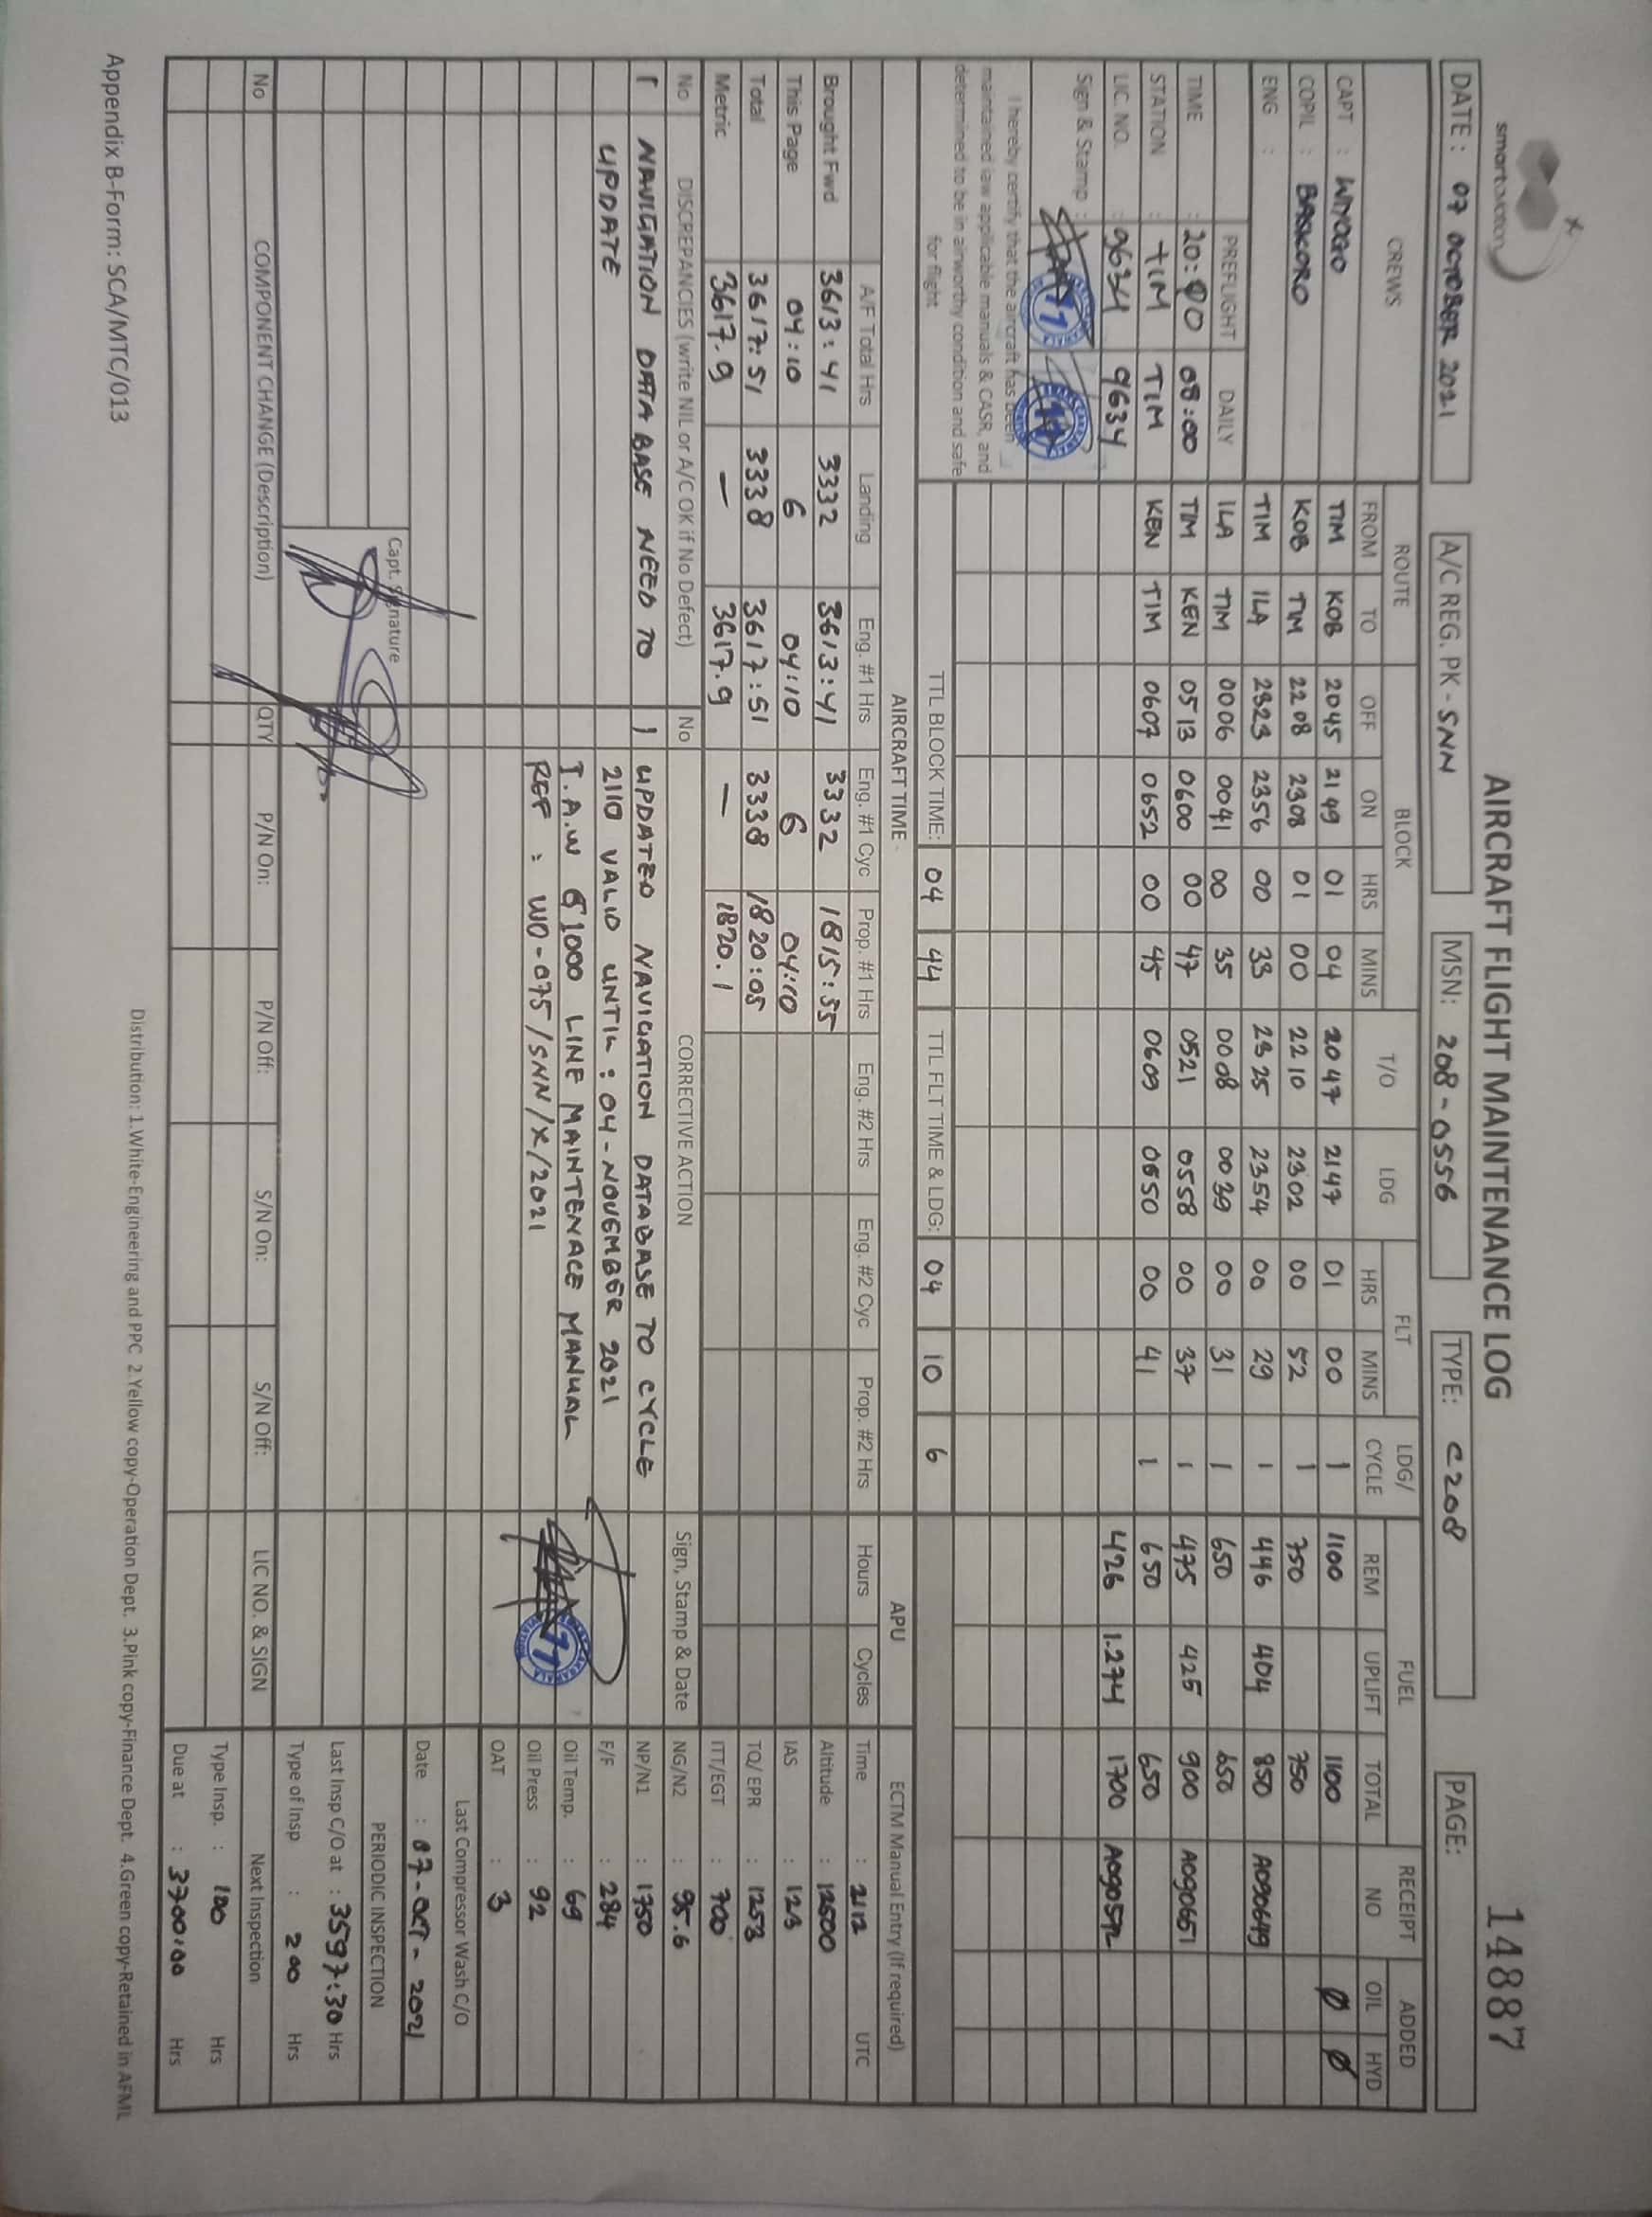 smart aviation
AIRCRAFT FLIGHT MAINTENANCE LOG
14887
DATE : 07 OCTOBER 2021
A/C REG. PK - SNN
MSN: 208-0556
TYPE: C208
PAGE:
CREWS ROUTE BLOCK T/O LDG FLT LDG/ CYCLE FUEL RECEIPT NO ADDED
FROM TO OFF ON HRS MINS HRS MINS REM UPLIFT TOTAL OIL HYD
CAPT : WIYOGO TIM KOB 2045 2149 01 04 2047 2147 01 00 1 1100 1100 Ø Ø
COPIL : BASKORO KOB TIM 2208 2308 01 00 2210 2302 00 52 1 750 750
ENG : TIM ILA 2323 2356 00 33 2325 2354 00 29 1 446 404 850 A090649
PREFLIGHT DAILY ILA TIM 0006 0041 00 35 0008 0039 00 31 1 650 650
TIME : 20:00 08:00 TIM KEN 0513 0600 00 47 0521 0558 00 37 1 475 425 900 A090651
STATION : TIM TIM KEN TIM 0607 0652 00 45 0609 0650 00 41 1 650 650
LIC. NO. : 9634 9634 426 1.274 1700 A090572
Sign & Stamp :
I hereby certify that the aircraft has been
maintained iaw applicable manuals & CASR, and
determined to be in airworthy condition and safe
for flight
TTL BLOCK TIME: 04 44 TTL FLT TIME & LDG: 04 10 6
AIRCRAFT TIME APU ECTM Manual Entry (If required)
A/F Total Hrs Landing Eng. #1 Hrs Eng. #1 Cyc Prop. #1 Hrs Eng. #2 Hrs Eng. #2 Cyc Prop. #2 Hrs Hours Cycles Time : 2112 UTC
Brought Fwd 3613:41 3332 3613:41 3332 1815:55 Altitude : 12500
This Page 04:10 6 04:10 6 04:10 IAS : 123
Total 3617:51 3338 3617:51 3338 1820:05 TQ/ EPR : 1253
Metric 3617.9 — 3617.9 — 1820.1 ITT/EGT : 700
No DISCREPANCIES (write NIL or A/C OK if No Defect) No CORRECTIVE ACTION Sign, Stamp & Date NG/N2 : 95.6
1 NAVIGATION DATA BASE NEED TO 1 UPDATED NAVIGATION DATABASE TO CYCLE NP/N1 : 1750
UPDATE 2110 VALID UNTIL : 04-NOVEMBER 2021 F/F : 284
I.A.W G1000 LINE MAINTENACE MANUAL Oil Temp. : 69
REF : WO-075/SNN/X/2021 Oil Press : 92
OAT : 3
Last Compressor Wash C/O
Date : 07-OCT-2021
Capt. Signature
PERIODIC INSPECTION
Last Insp C/O at : 3597:30 Hrs
Type of Insp : 200 Hrs
No COMPONENT CHANGE (Description) QTY P/N On: P/N Off: S/N On: S/N Off: LIC NO. & SIGN Next Inspection
Type Insp. : 100 Hrs
Due at : 3700:00 Hrs
Distribution: 1.White-Engineering and PPC 2.Yellow copy-Operation Dept. 3.Pink copy-Finance Dept. 4.Green copy-Retained in AFML
Appendix B-Form: SCA/MTC/013